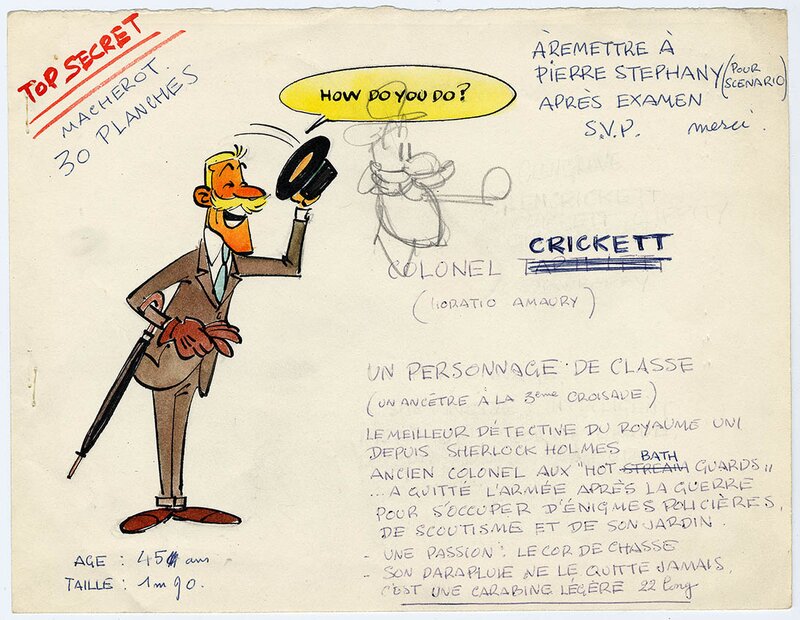 TOP SECRET
MACHEROT.
30 PLANCHES
À REMETTRE À
PIERRE STEPHANY (POUR SCENARIO)
APRÈS EXAMEN
S.V.P. merci.
HOW DO YOU DO?
CRICKETT
COLONEL
(HORATIO AMAURY)
UN PERSONNAGE DE CLASSE
(UN ANCÊTRE À LA 3ème CROISADE)
LE MEILLEUR DÉTECTIVE DU ROYAUME UNI
DEPUIS SHERLOCK HOLMES
BATH
ANCIEN COLONEL AUX "HOT STREAM GUARDS"
... A QUITTÉ L'ARMÉE APRÈS LA GUERRE
POUR S'OCCUPER D'ÉNIGMES POLICIÈRES,
DE SCOUTISME ET DE SON JARDIN.
- UNE PASSION : LE COR DE CHASSE
- SON PARAPLUIE NE LE QUITTE JAMAIS,
C'EST UNE CARABINE LÉGÈRE 22 long
AGE : 45 ans
TAILLE : 1m90.